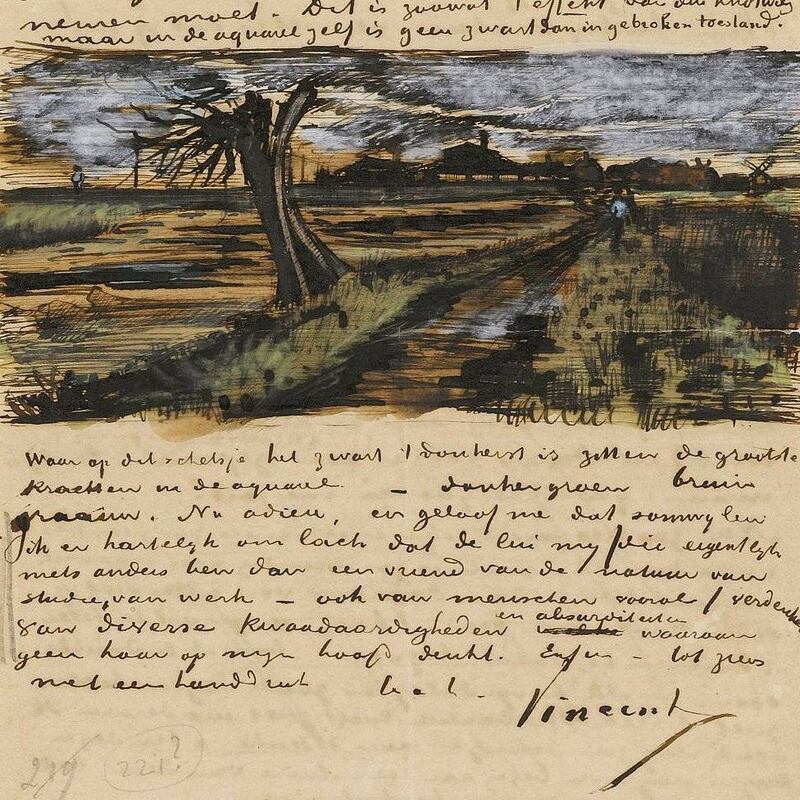 nemen moet. Dit is zoowat 't effekt van den knotwilg
maar in de aquarel zelf is geen zwart dan in gebroken toestand.
Waar op dit schetsje het zwart 't donkerst is zitten de grootste
krachten in de aquarel – donkergroen bruin
graauw. Nu adieu, en geloof me dat somwijlen
ik er hartelyk om lach dat de lui my / die eigentlyk
niets anders ben dan een vriend van de natuur van
studie, van werk – ook van menschen vooral / verdenken
van diverse kwaadaardigheden en absurditeiten waaraan
geen haar op myn hoofd denkt. Enfin – tot ziens
met een handdruk b. à t.
Vincent
219 221?